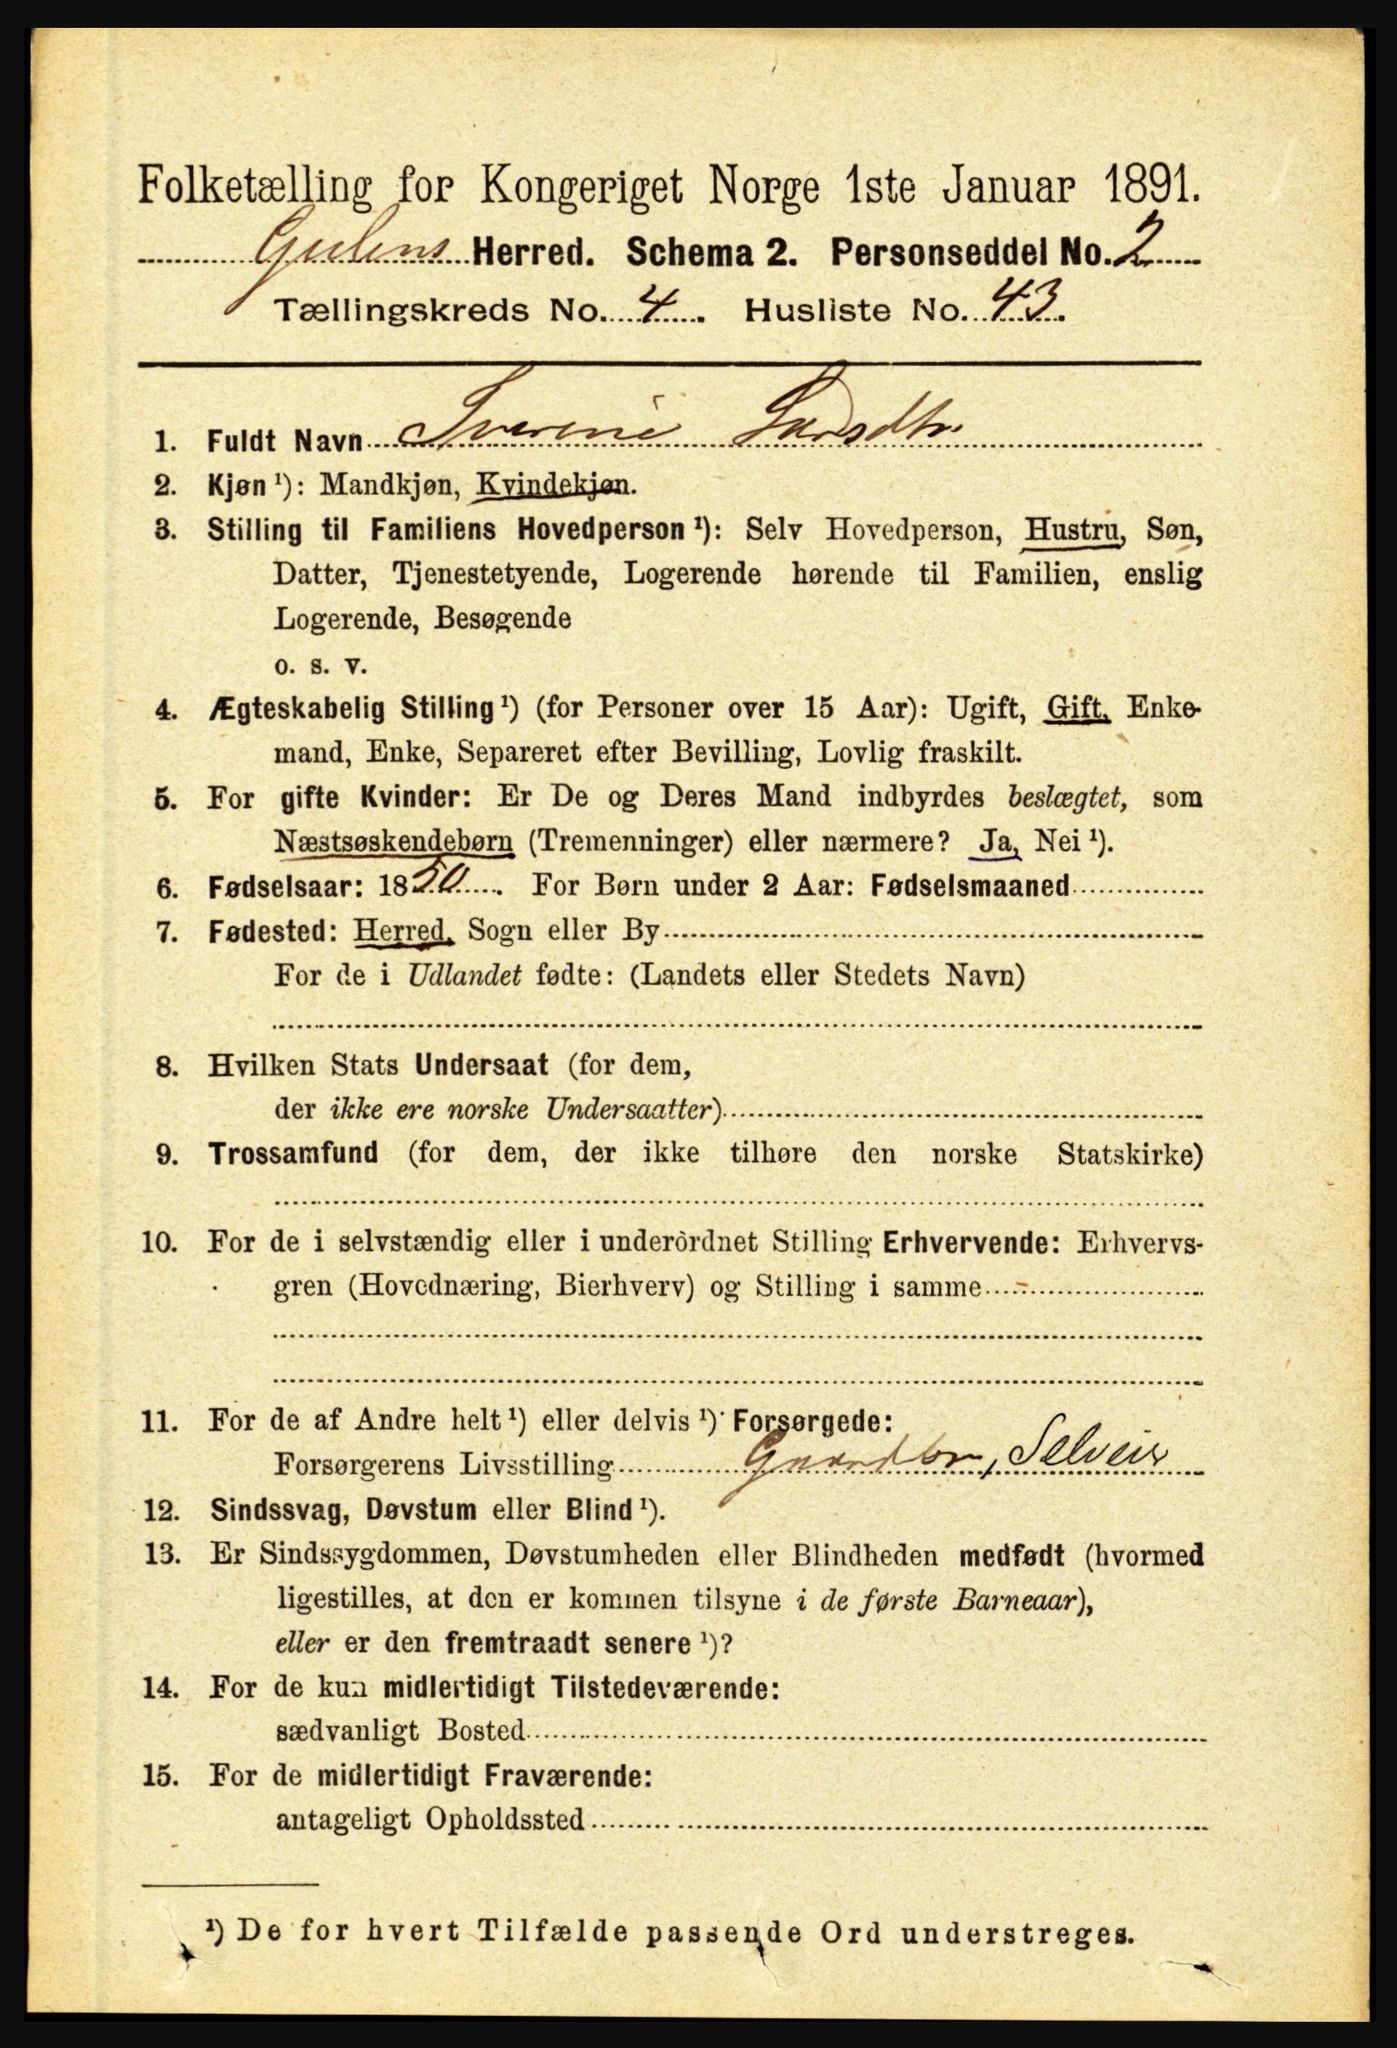 Folketælling for Kongeriget Norge 1ste Januar 1891.
Gulens Herred. Schema 2. Personseddel No. 2
Tællingskreds No. 4. Husliste No. 43.
1. Fuldt Navn Larsdtr.
2. Kjøn ¹): Mandkjøn, Kvindekjøn.
3. Stilling til Familiens Hovedperson ¹): Selv Hovedperson, Hustru, Søn,
Datter, Tjenestetyende, Logerende hørende til Familien, enslig
Logerende, Besøgende
o. s. v.
4. Ægteskabelig Stilling ¹) (for Personer over 15 Aar): Ugift, Gift, Enke-
mand, Enke, Separeret efter Bevilling, Lovlig fraskilt.
5. For gifte Kvinder: Er De og Deres Mand indbyrdes beslægtet, som
Næstsøskendebørn (Tremenninger) eller nærmere? Ja, Nei ¹).
6. Fødselsaar: 1850. For Børn under 2 Aar: Fødselsmaaned
7. Fødested: Herred, Sogn eller By
For de i Udlandet fødte: (Landets eller Stedets Navn)
8. Hvilken Stats Undersaat (for dem,
der ikke ere norske Undersaatter)
9. Trossamfund (for dem, der ikke tilhøre den norske Statskirke)
10. For de i selvstændig eller i underordnet Stilling Erhvervende: Erhvervs-
gren (Hovednæring, Bierhverv) og Stilling i samme -
11. For de af Andre helt ¹) eller delvis ¹) Forsørgede:
Forsørgerens Livsstilling Gaardbr, Selveier
12. Sindssvag, Døvstum eller Blind ¹).
13. Er Sindssygdommen, Døvstumheden eller Blindheden medfødt (hvormed
ligestilles, at den er kommen tilsyne i de første Barneaar),
eller er den fremtraadt senere ¹)?
14. For de kun midlertidigt Tilstedeværende:
sædvanligt Bosted
15. For de midlertidigt Fraværende:
antageligt Opholdssted
¹) De for hvert Tilfælde passende Ord understreges.